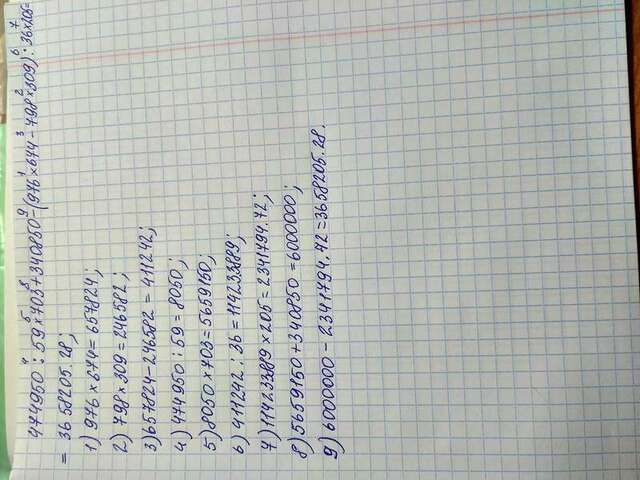 4 5 8 9 1 3 2 6 7
474950 : 59 × 703 + 340850 - (976 × 674 - 798 × 309) : 36 × 205 =
= 3658205.28;
1) 976 × 674 = 657824;
2) 798 × 309 = 246582;
3) 657824 - 246582 = 411242;
4) 474950 : 59 = 8050;
5) 8050 × 703 = 5659150;
6) 411242 : 36 = 11423.3889;
7) 11423.3889 × 205 = 2341794.72;
8) 5659150 + 340850 = 6000000;
9) 6000000 - 2341794.72 = 3658205.28.